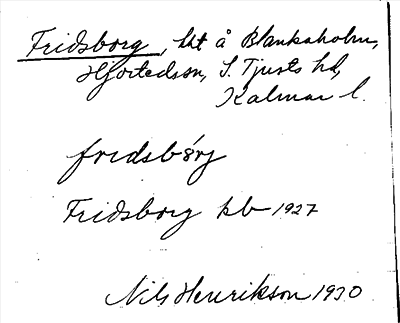 Fridsborg, lht å Blankaholm,
Hjorteds sn, S. Tjusts hd,
Kalmar l.
fridsbörj
Fridsborg kb 1927
Nils Henrikson 1930